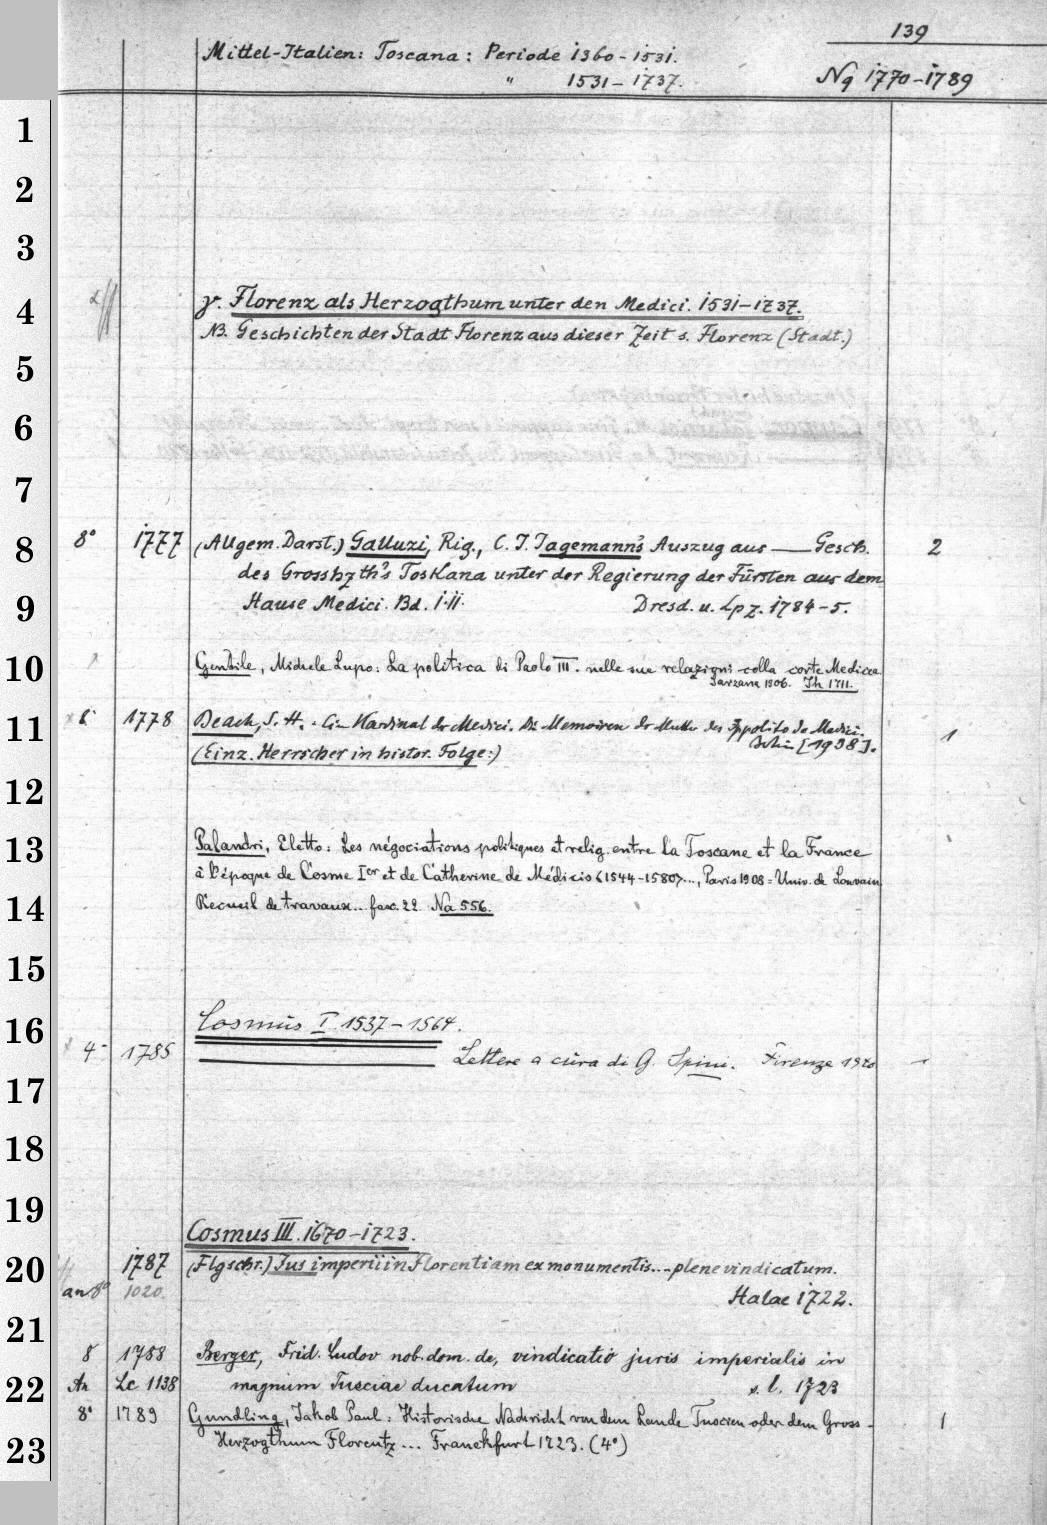 139
Mittel-Italien: Toscana: Periode 1360-1531.
" 1531-1737.
Nq 1770-1789
1
2
3
4 γ. Florenz als Herzogthum unter den Medici. 1531-1737.
NB. Geschichten der Stadt Florenz aus dieser Zeit s. Florenz (Stadt.)
5
6
7
8 8° 1777 (Allgem. Darst.) Galluzi, Rig., C. J. Jagemann's Auszug aus — Gesch. 2
des Grosshzth's Toskana unter der Regierung der Fürsten aus dem
9 Hause Medici. Bd. I.II. Dresd. u. Lpz. 1784-5.
10 Gentile, Michele Lupo: La politica di Paolo III. nelle sue relazioni colla corte Medicea.
Sarzana 1906. Th 1711.
11 1778 Deach, S. H.: Ein Kardinal der Medici. Die Memoiren der Mutter des Ippolito de Medici. 1
Berlin [1938].
(Einz. Herrscher in histor. Folge:)
12
13 Palandri, Eletto: Les négociations politiques et relig. entre la Toscane et la France
à l'époque de Cosme Ier et de Catherine de Médicis (1544-1580)..., Paris 1908 = Univ. de Louvain
14 Recueil de travaux... fasc. 22 Na 556.
15
16 Cosmus I. 1537-1564.
4° 1785 Lettere a cura di G. Spini. Firenze 1940 1
17
18
19 Cosmus III. 1670-1723.
20 1787 (Flgschr.) Jus imperii in Florentiam ex monumentis... plene vindicatum.
an 8° 1020. Halae 1722.
21
8 1788 Berger, Frid. Ludov nob. dom. de, vindicatio juris imperialis in
22 An Lc 1138 magnum Tusciae ducatum s. l. 1723
8° 1789 Gundling, Jakob Paul: Historische Nachricht von dem Lande Tuscien oder dem Gross- 1
23 Herzogthum Florentz ... Franckfurt 1723. (4°)